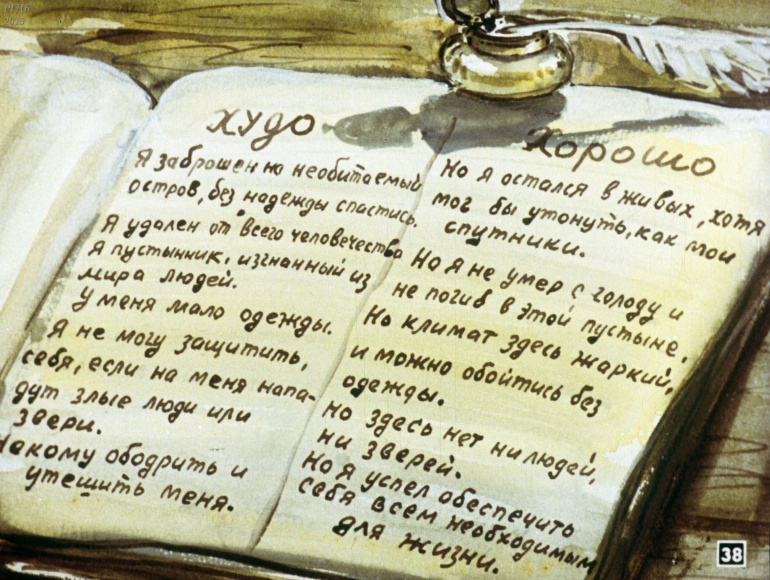 худо
Я заброшен на необитаемый
остров, без надежды спастись.
Я удален от всего человечества
Я пустынник, изгнанный из
мира людей.
У меня мало одежды.
Я не могу защитить,
себя, если на меня напа-
дут злые люди или
звери.
Некому ободрить и
утешить меня.
хорошо
Но я остался в живых, хотя
мог бы утонуть, как мои
спутники.
Но я не умер с голоду и
не погиб в этой пустыне.
Но климат здесь жаркий,
и можно обойтись без
одежды.
Но здесь нет ни людей,
ни зверей.
Но я успел обеспечить
себя всем необходимым
для жизни.
38